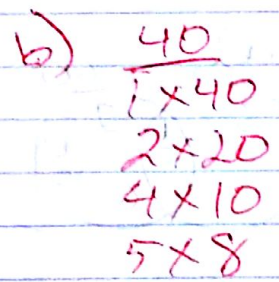 b) 40
1×40
2×20
4×10
5×8